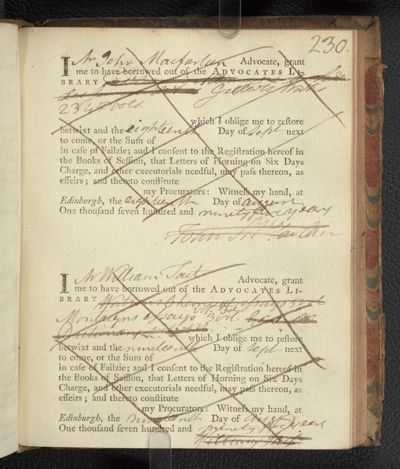 230.
I Mr John Macfarlan Advocate, grant
me to have borrowed out of the ADVOCATES LI-
BRARY
Gillies's
2d & vols.
which I oblige me to restore
betwixt and the eighteenth Day of Sept next
to come, or the Sum of
in case of Failzie; and I consent to the Registration hereof in
the Books of Session, that Letters of Horning on Six Days
Charge, and other executorials needful, may pass thereon, as
effeirs; and thereto constitute
my Procurators: Witness my hand, at
Edinburgh, the eighteenth Day of
One thousand seven hundred and ninety five years
I Mr William Tait Advocate, grant
me to have borrowed out of the ADVOCATES LI-
BRARY
Montaigne's Essays 3 vol.
Dictionary
which I oblige me to restore
betwixt and the nineteenth Day of Sept next
to come, or the Sum of
in case of Failzie; and I consent to the Registration hereof in
the Books of Session, that Letters of Horning on Six Days
Charge, and other executorials needful, may pass thereon, as
effeirs; and thereto constitute
my Procurators: Witness my hand, at
Edinburgh, the nineteenth Day of
One thousand seven hundred and ninety five years
William Tait